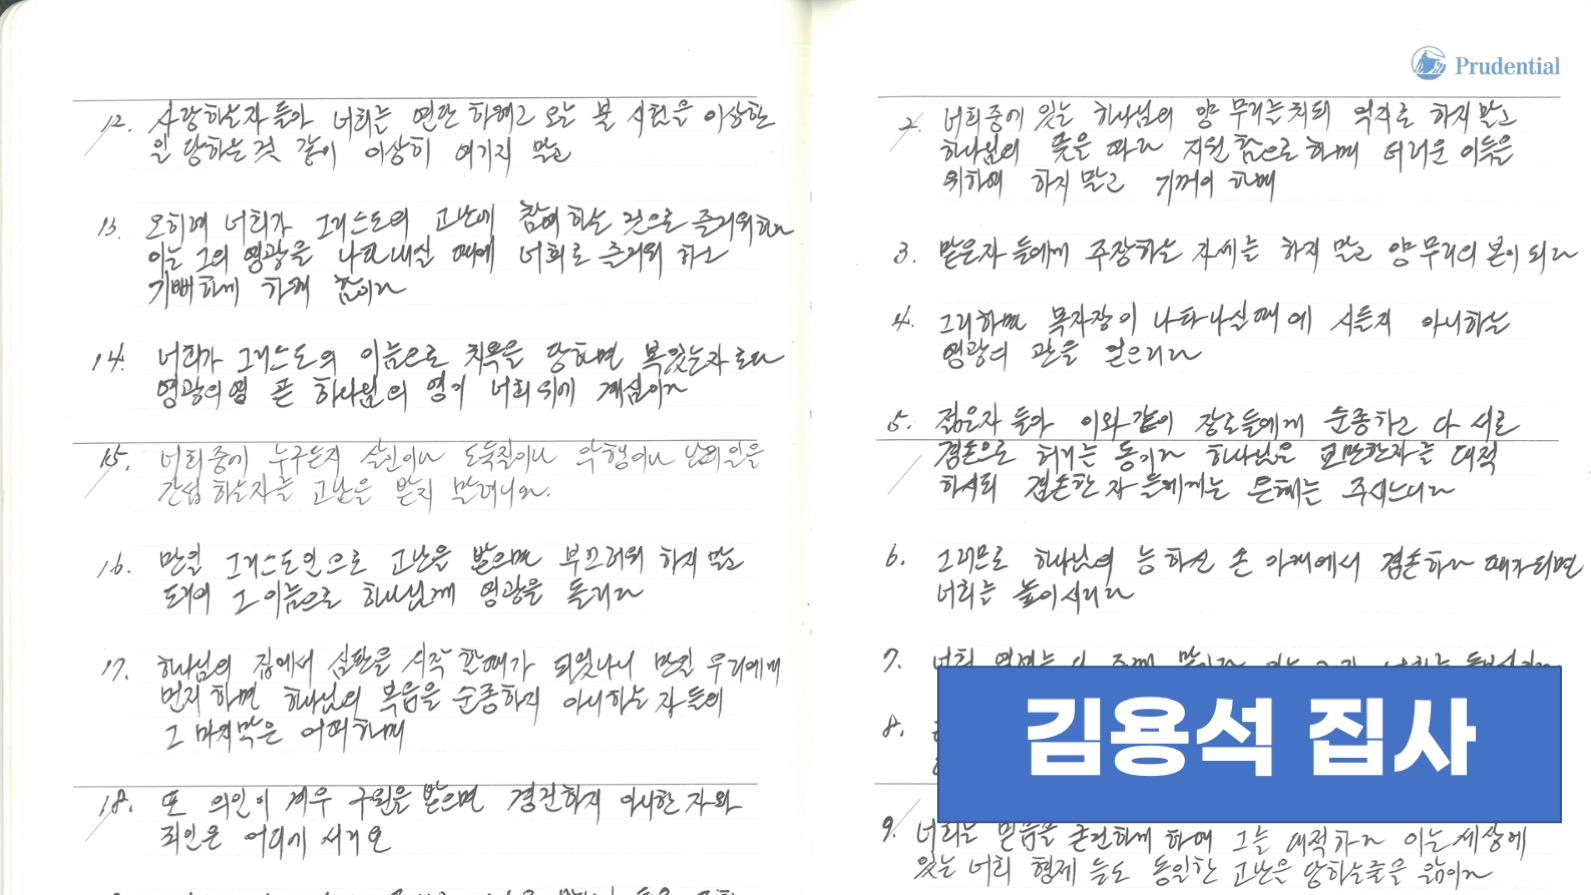 12. 사랑하는자 들아 너희를 연단 하려고 오는 불 시험을 이상한
일 당하는것 같이 이상히 여기지 말고
13. 오히려 너희가 그리스도의 고난에 참여하는 것으로 즐거워하라
이는 그의 영광을 나타내실 때에 너희로 즐거워 하고
기뻐하게 하려 함이라
14. 너희가 그리스도의 이름으로 치욕을 당하면 복있는자 로다
영광의영 곧 하나님의 영이 너희위에 계심이라
15. 너희중에 누구든지 살인이나 도둑질이나 악행이나 남의일을
간섭 하는자로 고난을 받지 말려니와.
16. 만일 그리스도인으로 고난을 받으면 부끄러워 하지 말고
도리어 그 이름으로 하나님께 영광을 돌리라
17. 하나님의 집에서 심판을 시작 할때가 되었나니 만일 우리에게
먼저 하면 하나님의 복음을 순종하지 아니하는 자들의
그 마지막은 어떠하며
18. 또 의인이 겨우 구원을 받으면 경건하지 아니한 자와
죄인은 어디에 서리요
Prudential
2. 너희중에 있는 하나님의 양 무리를치되 억지로 하지말고
하나님의 뜻을 따라 자원함으로 하며 더러운 이득을
위하여 하지 말고 기꺼이 하며
3. 맡은자 들에게 주장하는 자세를 하지 말고 양무리의 본이 되라
4. 그리하면 목자장이 나타나실때에 시들지 아니하는
영광의 관을 얻으리라
5. 젊은자 들아 이와같이 장로들에게 순종하고 다 서로
겸손으로 허리를 동이라 하나님은 교만한자를 대적
하시되 겸손한 자 들에게는 은혜를 주시느니라
6. 그러므로 하나님의 능 하신 손 아래에서 겸손하라 때가되면
너희를 높이시리라
7. 너희
8.
김용석 집사
9. 너희는 믿음을 굳건하게 하여 그를 대적하라 이는 세상에
있는 너희 형제 들도 동일한 고난을 당하는줄을 앎이라